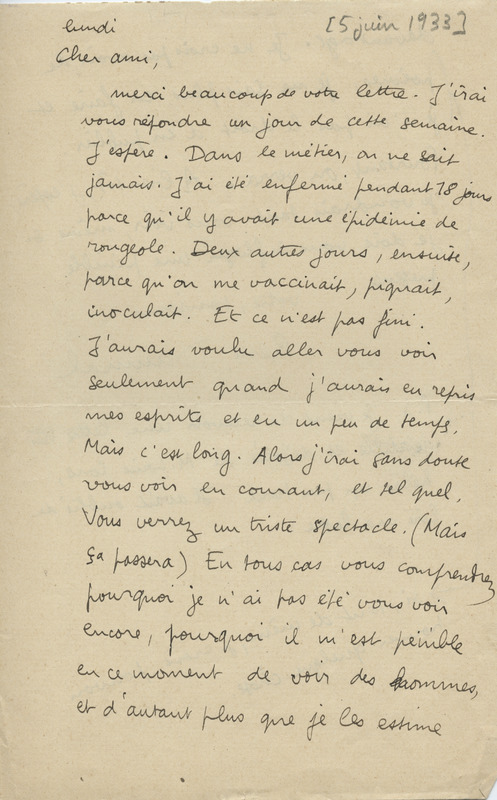 lundi
[5 juin 1933]
Cher ami,
merci beaucoup de votre lettre. J'irai
vous répondre un jour de cette semaine.
J'espère. Dans le métier, on ne sait
jamais. J'ai été enfermé pendant 18 jours
parce qu'il y avait une épidémie de
rougeole. Deux autres jours, ensuite,
parce qu'on me vaccinait, piquait,
inoculait. Et ce n'est pas fini.
J'aurais voulu aller vous voir
seulement quand j'aurais eu repris
mes esprits et eu un peu de temps.
Mais c'est long. Alors j'irai sans doute
vous voir en courant, et tel quel.
Vous verrez un triste spectacle. (Mais
ça passera) En tous cas vous comprendrez
pourquoi je n'ai pas été vous voir
encore, pourquoi il m'est pénible
en ce moment de voir des hommes,
et d'autant plus que je les estime